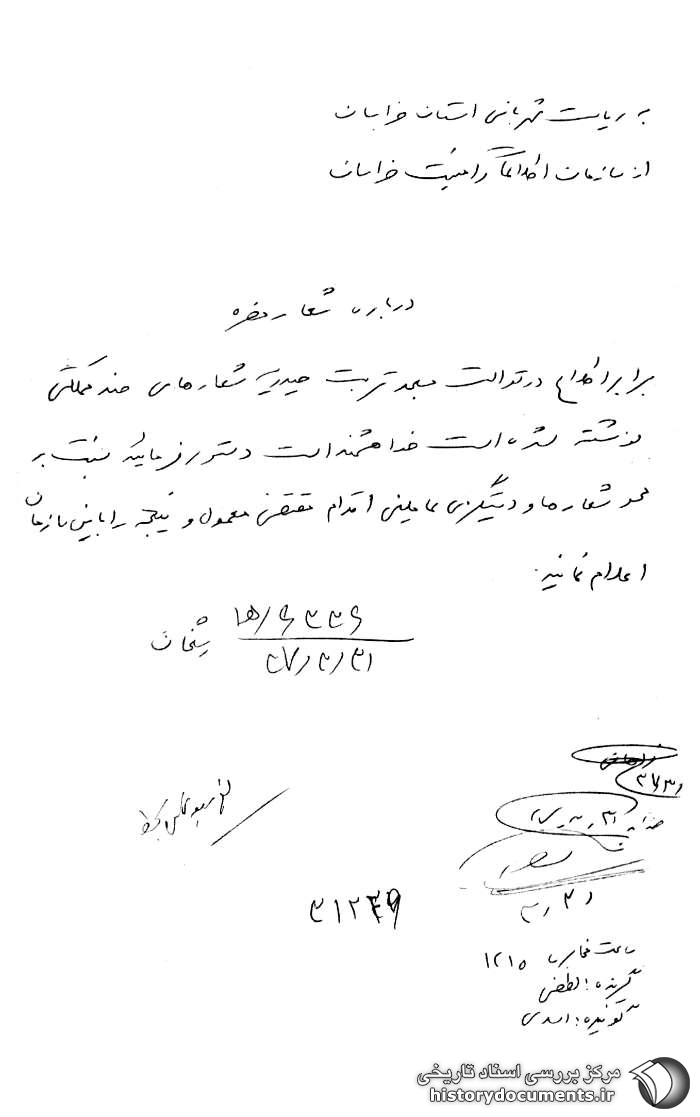 به ریاست شهربانی استان خراسان
از سازمان اطلاعات و امنیت خراسان
درباره شعار مضره
برابر اطلاع در توالت مسجد تربت حیدریه شعارهای ضد مملکتی
نوشته شده است خواهشمند است دستور فرمایید نسبت به
محو شعارها و دستگیری عاملین اقدام مقتضی معمول و نتیجه را باین سازمان
اعلام نمایید.
شیخان
۳۷/۳/۳۱
۳۱۲۴۹
ساعت مخابره ۱۲۱۵
گیرنده: لطفی
گوینده: اسدی
مرکز بررسی اسناد تاریخی
historydocuments.ir